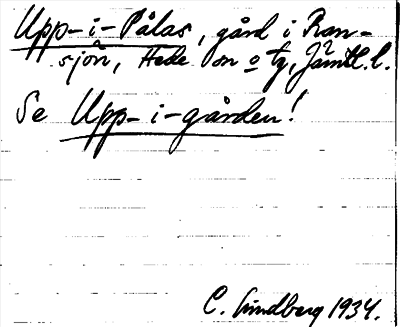 Upp-i-Pålas, gård i Ran-
sjön, Hede sn o tg, Jämtl. l.
Se Upp-i-gården!
C. Lindberg 1934.